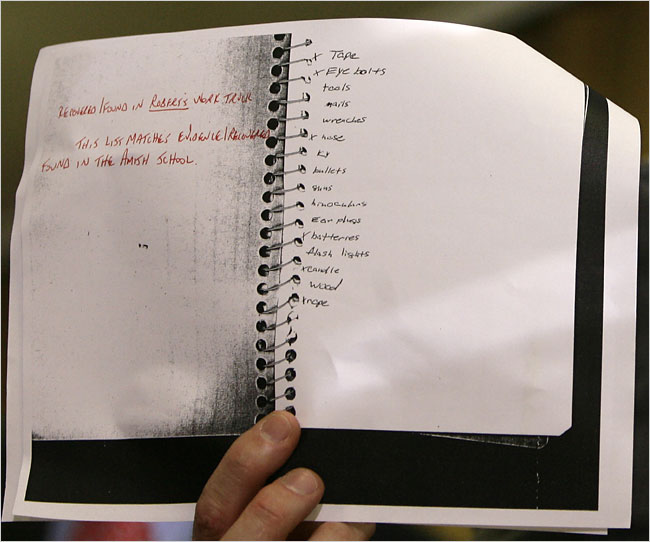 RECOVERED/FOUND IN ROBERTS WORK TRUCK
THIS LIST MATCHES EVIDENCE/RECOVERED
FOUND IN THE AMISH SCHOOL.
x Tape
x Eye bolts
tools
nails
wrenches
x hose
KY
bullets
guns
binoculars
Ear plugs
x batteries
flash lights
x candle
wood
x rope